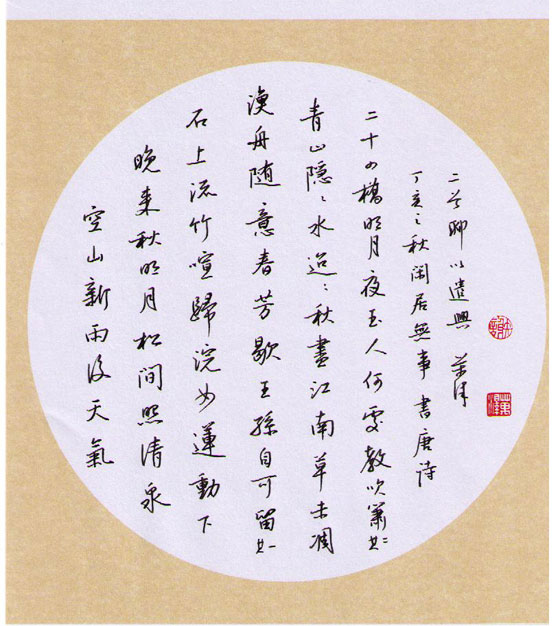 空山新雨後天氣
晚来秋明月松間照清泉
石上流竹喧歸浣女蓮動下
渔舟随意春芳歇王孫自可留其一
青山隐々水迢々秋盡江南草未凋
二十四橋明月夜玉人何處教吹箫其二
丁亥之秋闲居無事書唐诗
二首聊以遣興